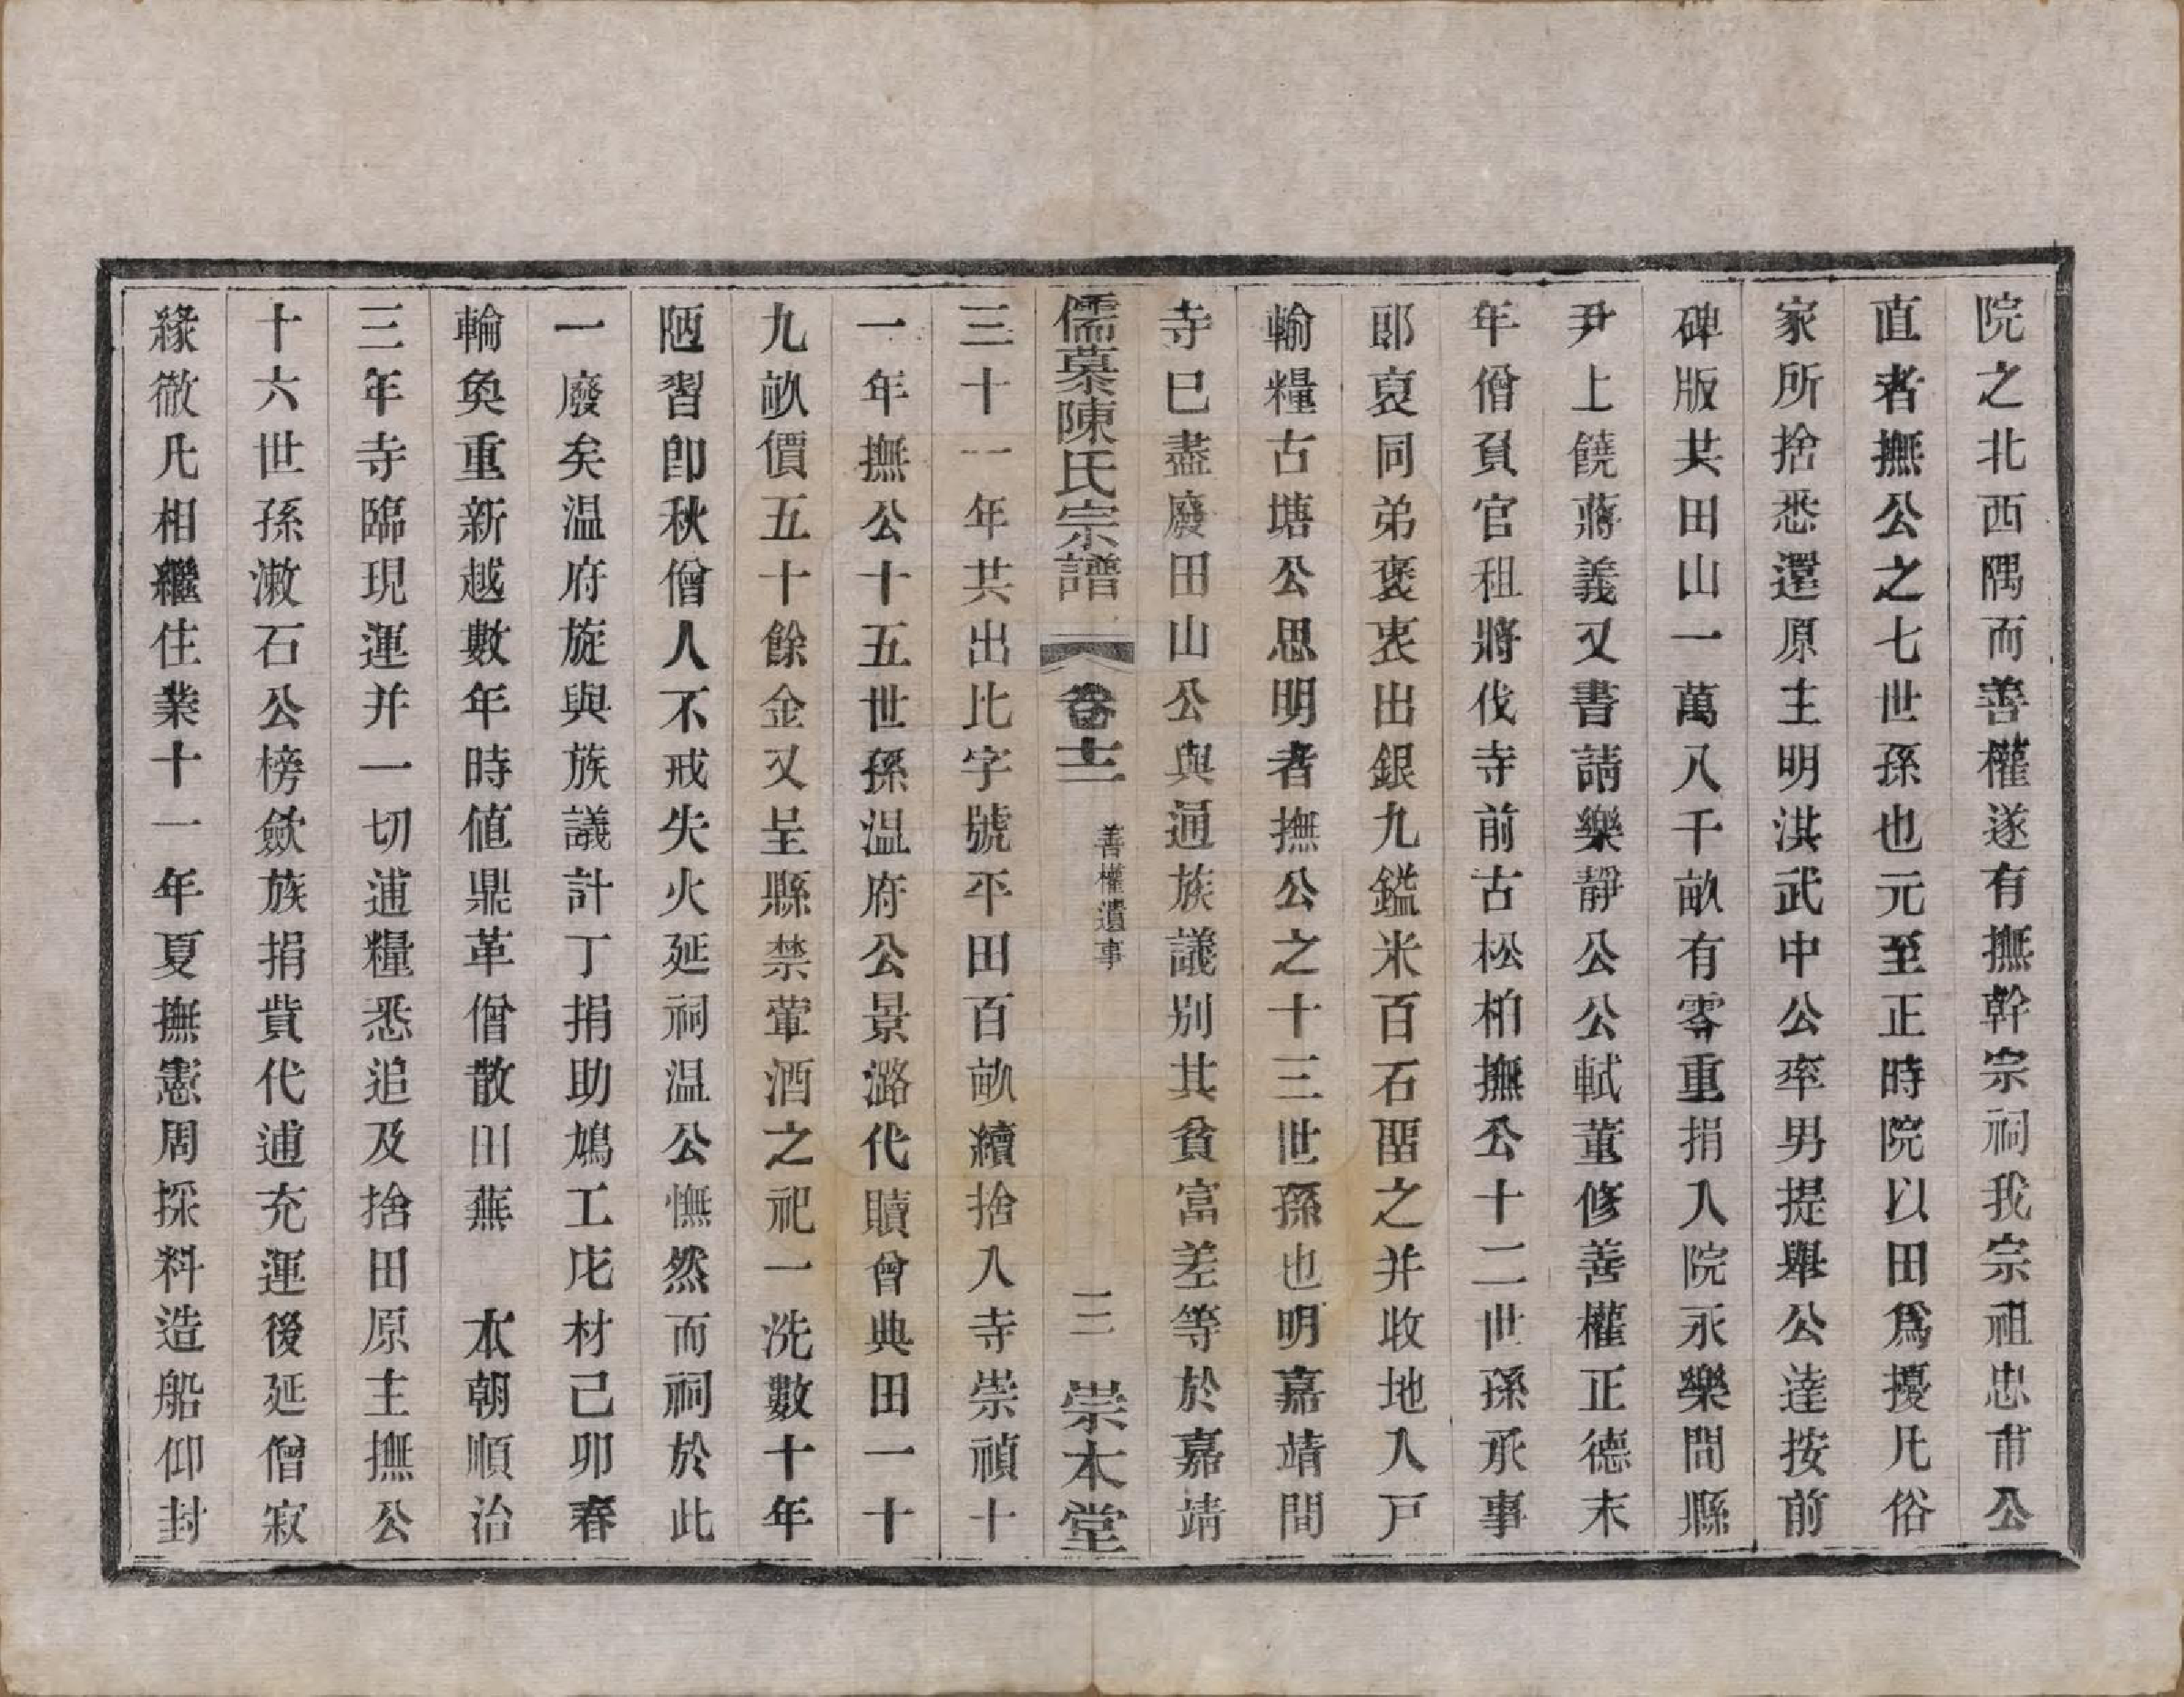 院之北西隅而善權遂有撫幹宗祠我宗祖忠甫公
直者撫公之七世孫也元至正時院以田爲擾凡俗
家所捨悉還原主明洪武中公率男提舉公逹按前
碑版共田山一萬八千畝有零重捐入院永樂間縣
尹上饒蔣義又書請樂靜公公軾董修善權正德末
年僧負官租將伐寺前古松柏撫公十二世孫承事
郎裒同弟褒衷出銀九鎰米百石畱之并收地入戸
輸糧古塘公思明者撫公之十三世孫也明嘉靖間
寺巳盡廢田山公與通族議别其貧富差等於嘉靖
儒慕陳氏宗譜 卷十二 善權遺事 三 崇本堂
三十一年共出比字號平田百畝續捨入寺崇禎十
一年撫公十五世孫温府公景潞代贖曾典田一十
九畝價五十餘金又呈縣禁葷酒之祀一洗數十年
陋習卽秋僧人不戒失火延祠温公憮然而祠於此
一廢矣温府旋與族議計丁捐助鳩工庀材己卯春
輪奐重新越數年時値鼎革僧散田蕪 本朝順治
三年寺臨現運并一切逋糧悉追及捨田原主撫公
十六世孫漱石公榜歛族捐貲代逋充運後延僧寂
緣徹凡相繼住業十一年夏撫憲周採料造船仰封